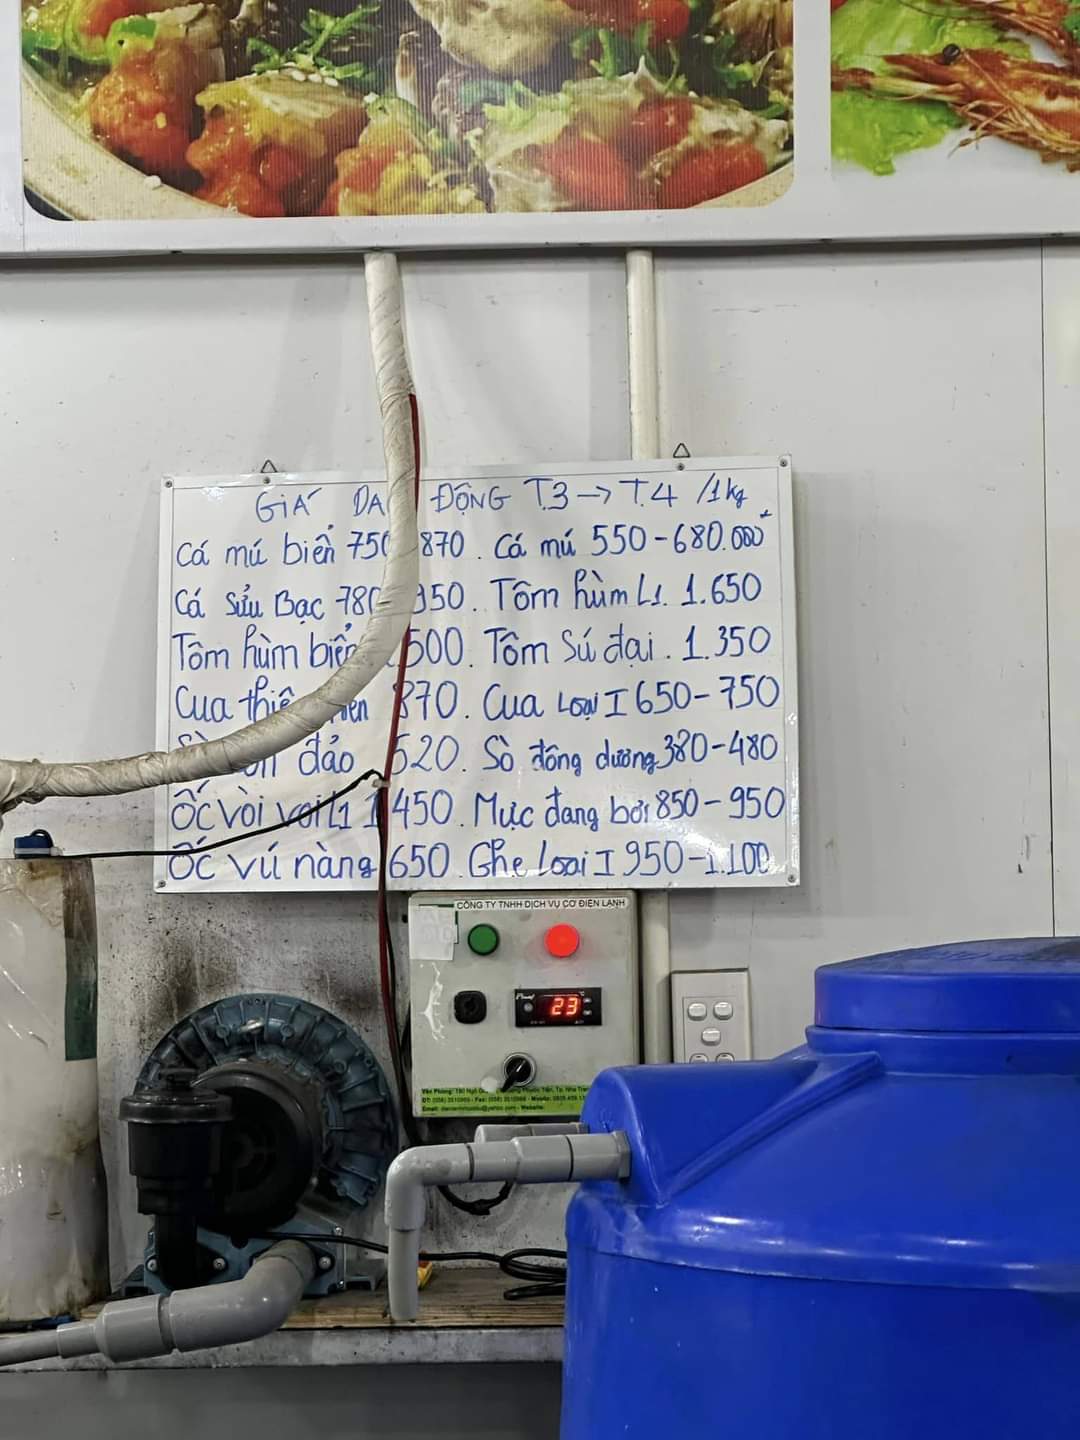 GIÁ ĐỘNG T.3 → T.4 /1kg
Cá mú biển 750 870 . Cá mú 550-680.000đ
Cá Sửu Bạc 780 950 . Tôm hùm L1. 1.650
Tôm hùm biển 500 . Tôm Sú đại . 1.350
Cua 870 . Cua Loại I 650-750
đảo 520 . Sò đông dương 380-480
Ốc vòi voi L1 1 450 . Mực đang bơi 850-950
Ốc vú nàng 650 . Ghẹ Loại I 950-1.100
CÔNG TY TNHH DỊCH VỤ CƠ ĐIỆN LẠNH
23